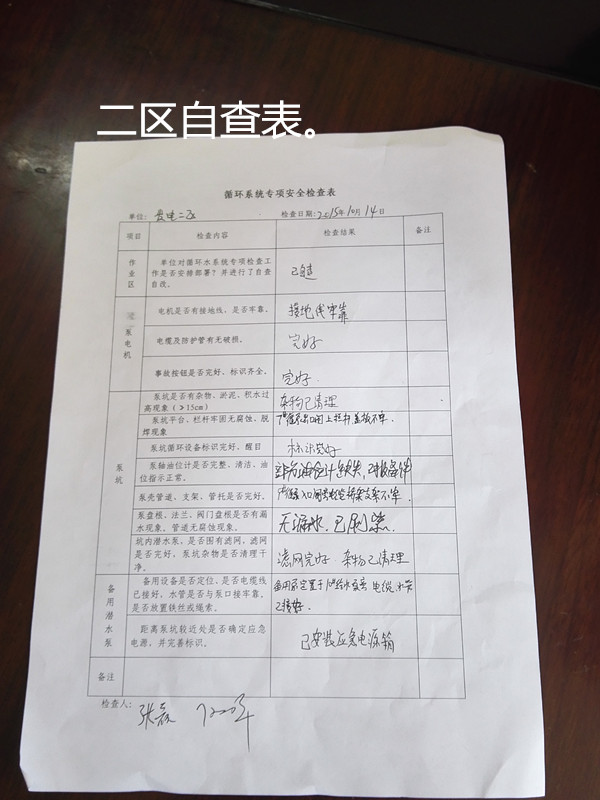 二区自查表。
循环系统专项安全检查表
单位: 贵电二区 检查日期: 2015年10月14日
项目 检查内容 检查结果 备注
作业区
单位对循环水系统专项检查工
作是否安排部署?并进行了自查
自改。
已建
泵电机
电机是否有接地线、是否牢靠。
接地线牢靠
电缆及防护管有无破损。
完好
事故按钮是否完好、标识齐全。
完好.
泵坑
泵坑是否有杂物、淤泥、积水过
高现象(>15cm)
杂物已清理
泵坑平台、栏杆牢固无腐蚀、脱
焊现象
盖板不牢.
泵坑循环设备标识完好、醒目
标识完好
泵轴油位计是否完整、清洁、油
位指示正常。
缺失,
泵壳管道、支架、管托是否完好。
入口 桥架支架不牢.
泵盘根、法兰、阀门盘根是否有漏
水现象。管道无腐蚀现象。
无漏水.已刷漆.
坑内潜水泵、是否固有滤网、滤网
是否完好、泵坑杂物是否清理干
净。
滤网完好 杂物已清理
备用潜水泵
备用设备是否定位、是否电缆线
已接好、水管是否与泵口接牢靠、
是否放置铁丝或绳索。
备用泵定置于1#给水泵旁 电缆,水管
已接好.
距离泵坑较近处是否确定应急
电源,并完善标识。
已安装应急电源箱
备注
检查人:
张磊